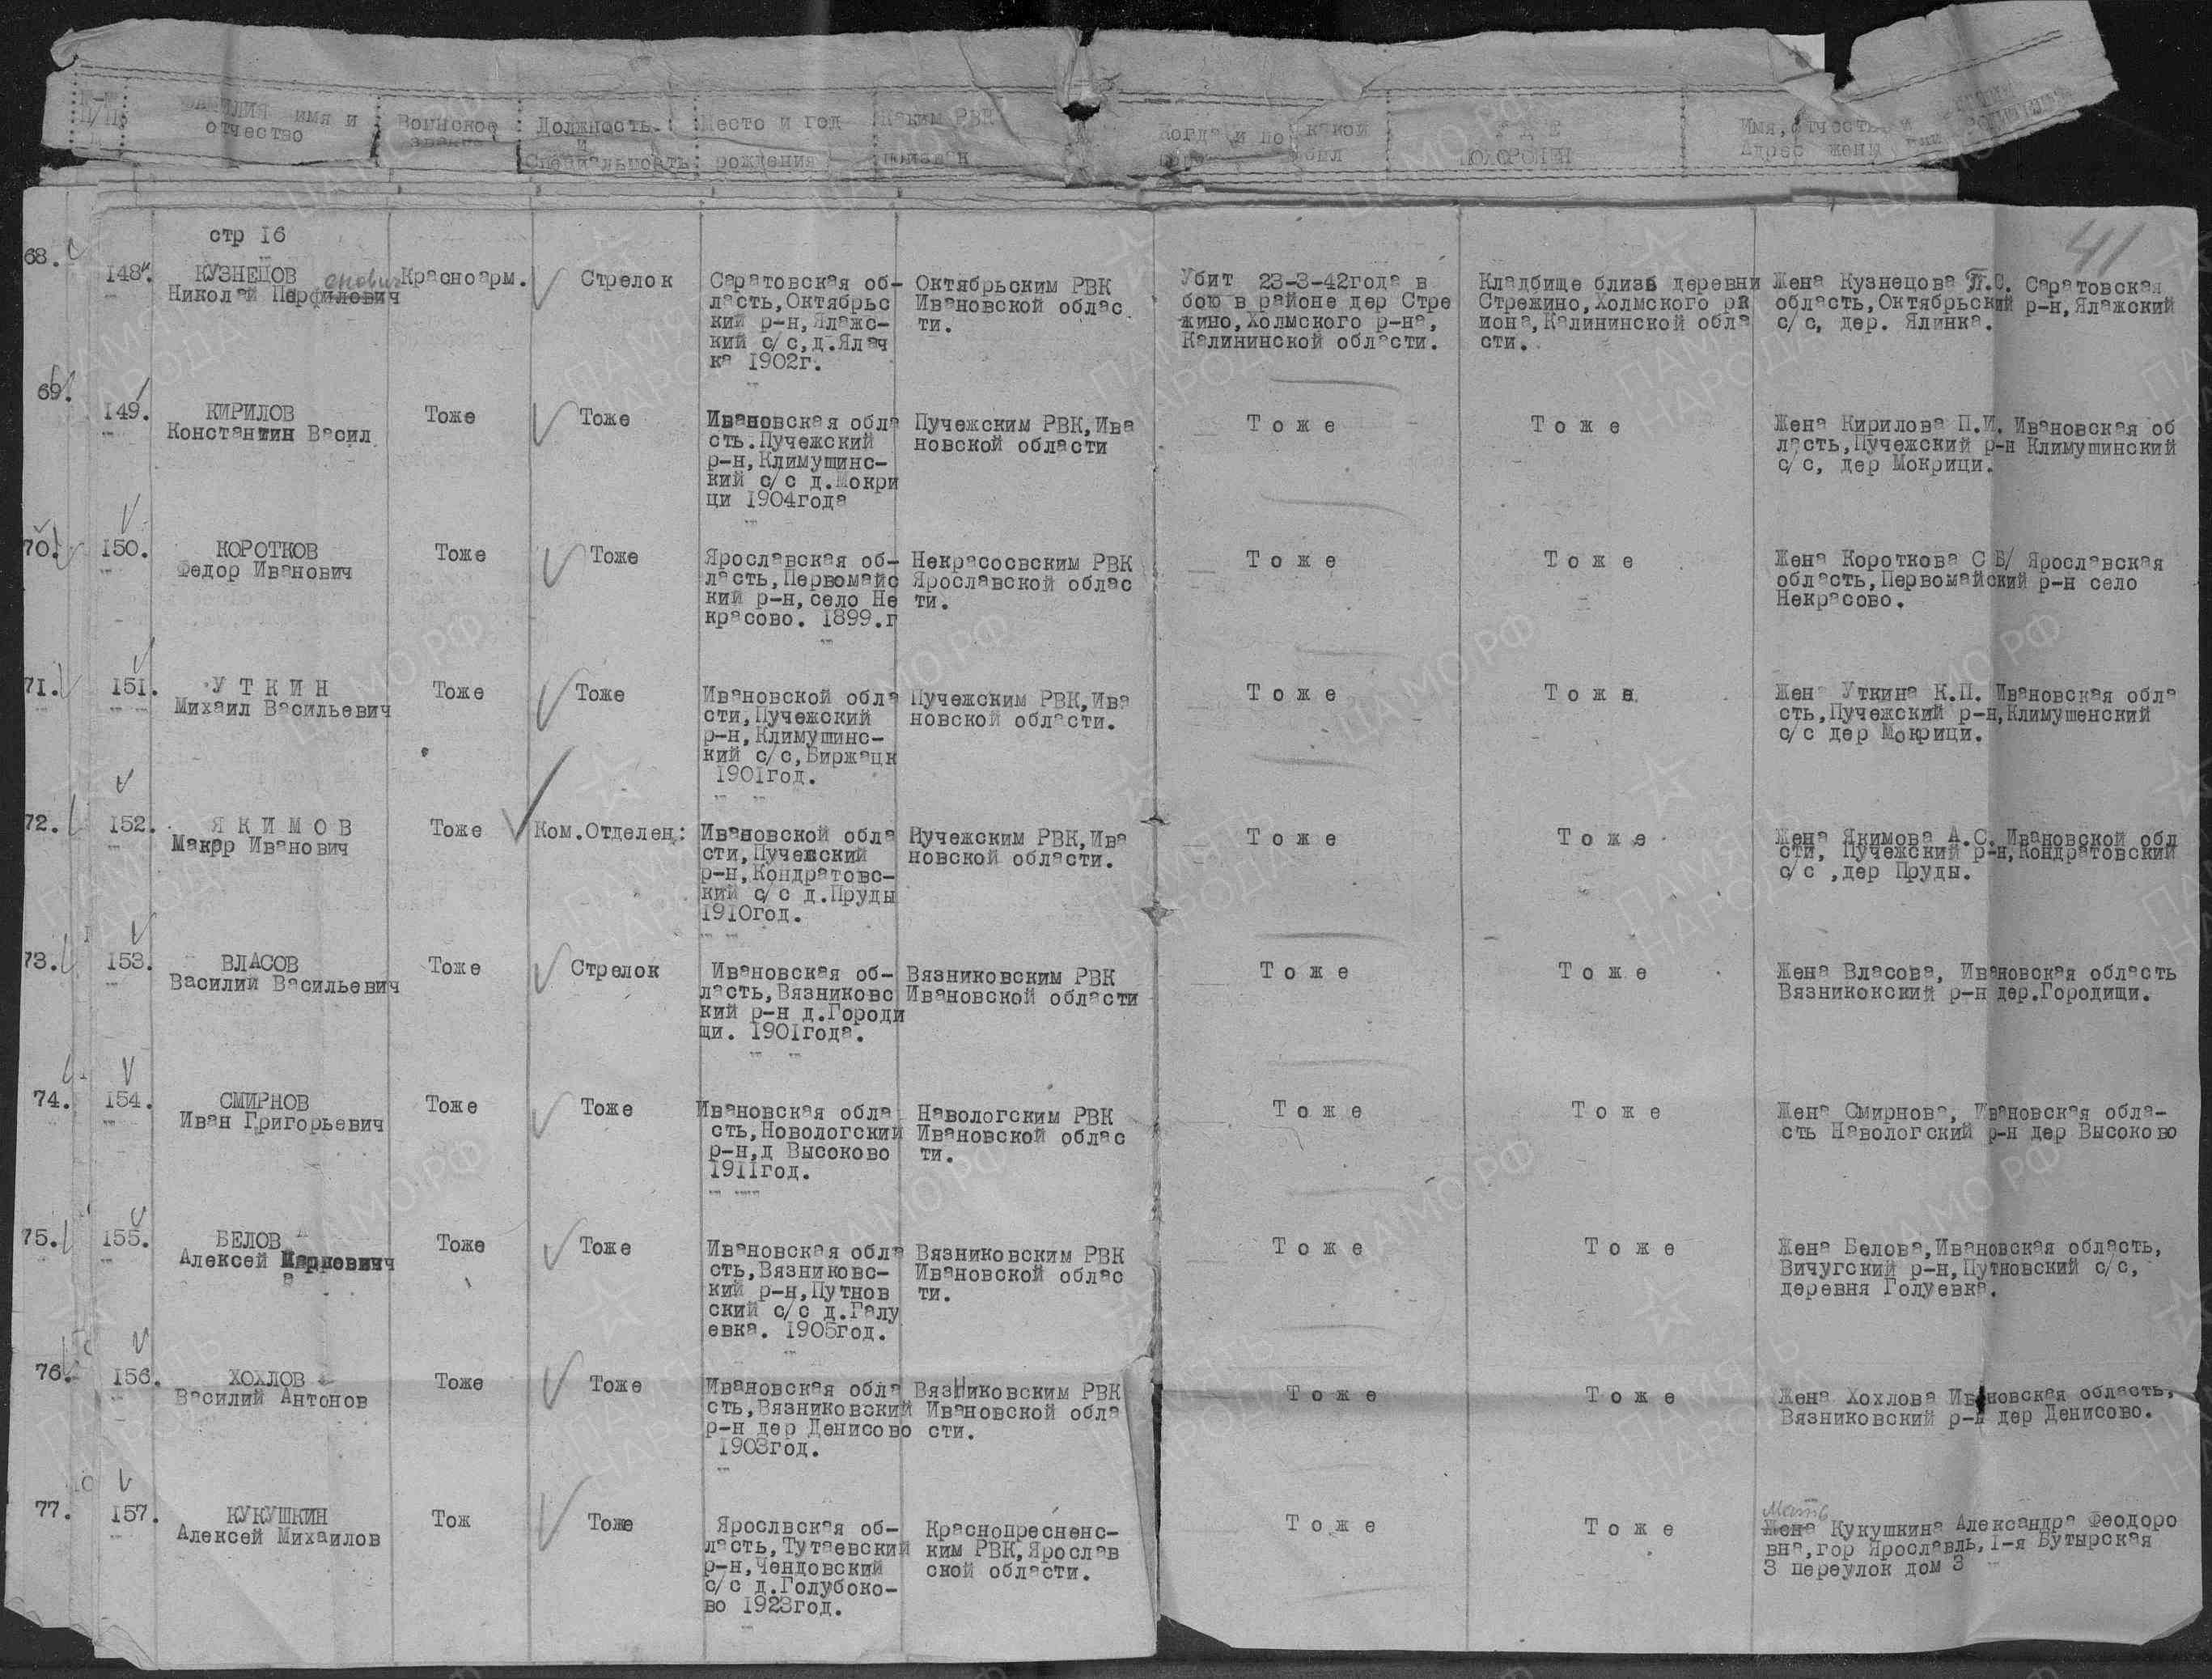 П/П
ФАМИЛИЯ имя и
отчество
Воинское
звание
Должность
и
Специальность
Место и год
рождения
Каким РВК
призван
Когда и по какой
ГДЕ
ПОХОРОНЕН
Имя, отчество и
Адрес жены или
41
стр 16
68.
148.
КУЗНЕЦОВ
Николай Перфилович
енович
Красноарм.
Стрелок
Саратовская об-
ласть,Октябрьс
кий р-н,Ялажс-
кий с/с,д.Ялач
ка 1902г.
Октябрьским РВК
Ивановской облас
ти.
Убит 23-3-42года в
бою в районе дер Стре
жино,Холмского р-на,
Калининской области.
Кладбище близь деревни
Стрежино,Холмского ра
иона,Калининской обла
сти.
Жена Кузнецова П.С. Саратовская
область,Октябрьский р-н,Ялажский
с/с, дер. Ялинка.
69.
149.
КИРИЛОВ
Константин Васил
Тоже
Тоже
Ивановская обла
сть.Пучежский
р-н,Климушинс-
кий с/с д.Мокри
ци 1904года
Пучежским РВК,Ива
новской области
Тоже
Тоже
Жена Кирилова П.И. Ивановская об
ласть,Пучежский р-н Климушинский
с/с, дер Мокрици.
70.
150.
КОРОТКОВ
Федор Иванович
Тоже
Тоже
Ярославская об-
ласть,Первомайс
кий р-н,село Не
красово. 1899.г
Некрасосвским РВК
Ярославской облас
ти.
Тоже
Тоже
Жена Короткова С Б/ Ярославская
область,Первомайский р-н село
Некрасово.
71.
151.
УТКИН
Михаил Васильевич
Тоже
Тоже
Ивановской обла
сти,Пучежский
р-н,Климушинс-
кий с/с,Биржацк
1901год.
Пучежским РВК,Ива
новской области.
Тоже
Тоже
Жена Уткина К.П. Ивановская обла
сть,Пучежский р-н,Климушенский
с/с дер Мокрици.
72.
152.
ЯКИМОВ
Макар Иванович
Тоже
Ком.Отделен:
Ивановской обла
сти,Пучежский
р-н,Кондратовс-
кий с/с д.Пруды
1910год.
Пучежским РВК,Ива
новской области.
Тоже
Тоже
Жена Якимова А.С. Ивановской обл
сти, Пучежский р-н,Кондратовский
с/с ,дер Пруды.
73.
153.
ВЛАСОВ
Василий Васильевич
Тоже
Стрелок
Ивановская об-
ласть,Вязниковс
кий р-н д.Городи
щи. 1901года.
Вязниковским РВК
Ивановской области
Тоже
Тоже
Жена Власова, Ивановская область
Вязникокский р-н дер.Городищи.
74.
154.
СМИРНОВ
Иван Григорьевич
Тоже
Тоже
Ивановская обла
сть,Новологский
р-н,д Высоково
1911год.
Навологским РВК
Ивановской облас
ти.
Тоже
Тоже
Жена Смирнова, Ивановская обла-
сть Навологский р-н дер Высоково
75.
155.
БЕЛОВ
Алексей
Тоже
Тоже
Ивановская обла
сть,Вязниковс-
кий р-н,Путнов
ский с/с д.Галу
евка. 1905год.
Вязниковским РВК
Ивановской облас
ти.
Тоже
Тоже
Жена Белова,Ивановская область,
Вичугский р-н,Путновский с/с,
деревня Голуевка.
76.
156.
ХОХЛОВ
Василий Антонов
Тоже
Тоже
Ивановская обла
сть,Вязниковский
р-н дер Денисово
1903год.
Вязниковским РВК
Ивановской обла
сти.
Тоже
Тоже
Жена Хохлова Ивановская область,
Вязниковский р-н дер Денисово.
77.
157.
КУКУШКИН
Алексей Михаилов
Тож
Тоже
Ярослвская об-
ласть,Тутаевский
р-н,Чендовский
с/с д.Голубоко-
во 1923год.
Краснопресненс-
ким РВК,Ярослав
ской области.
Тоже
Тоже
Мать
Жена Кукушкина Александра Феодоро
вна,гор Ярославль,1-я Бутырская
3 переулок дом 3